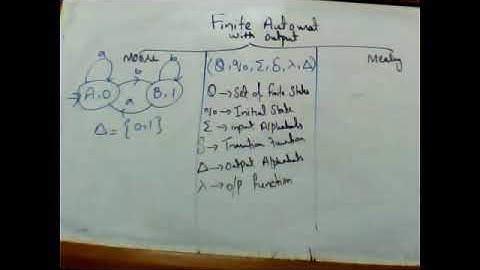 Finite Automat
with output
Moore
Mealy
(Q, q0, Σ, δ, λ, Δ)
a
b
b
A,0
B,1
a
Δ = {0,1}
Q → Set of Finite States
q0 → Initial State
Σ → input Alphabets
δ → Transition Function
Δ → Output Alphabets
λ → o/p function